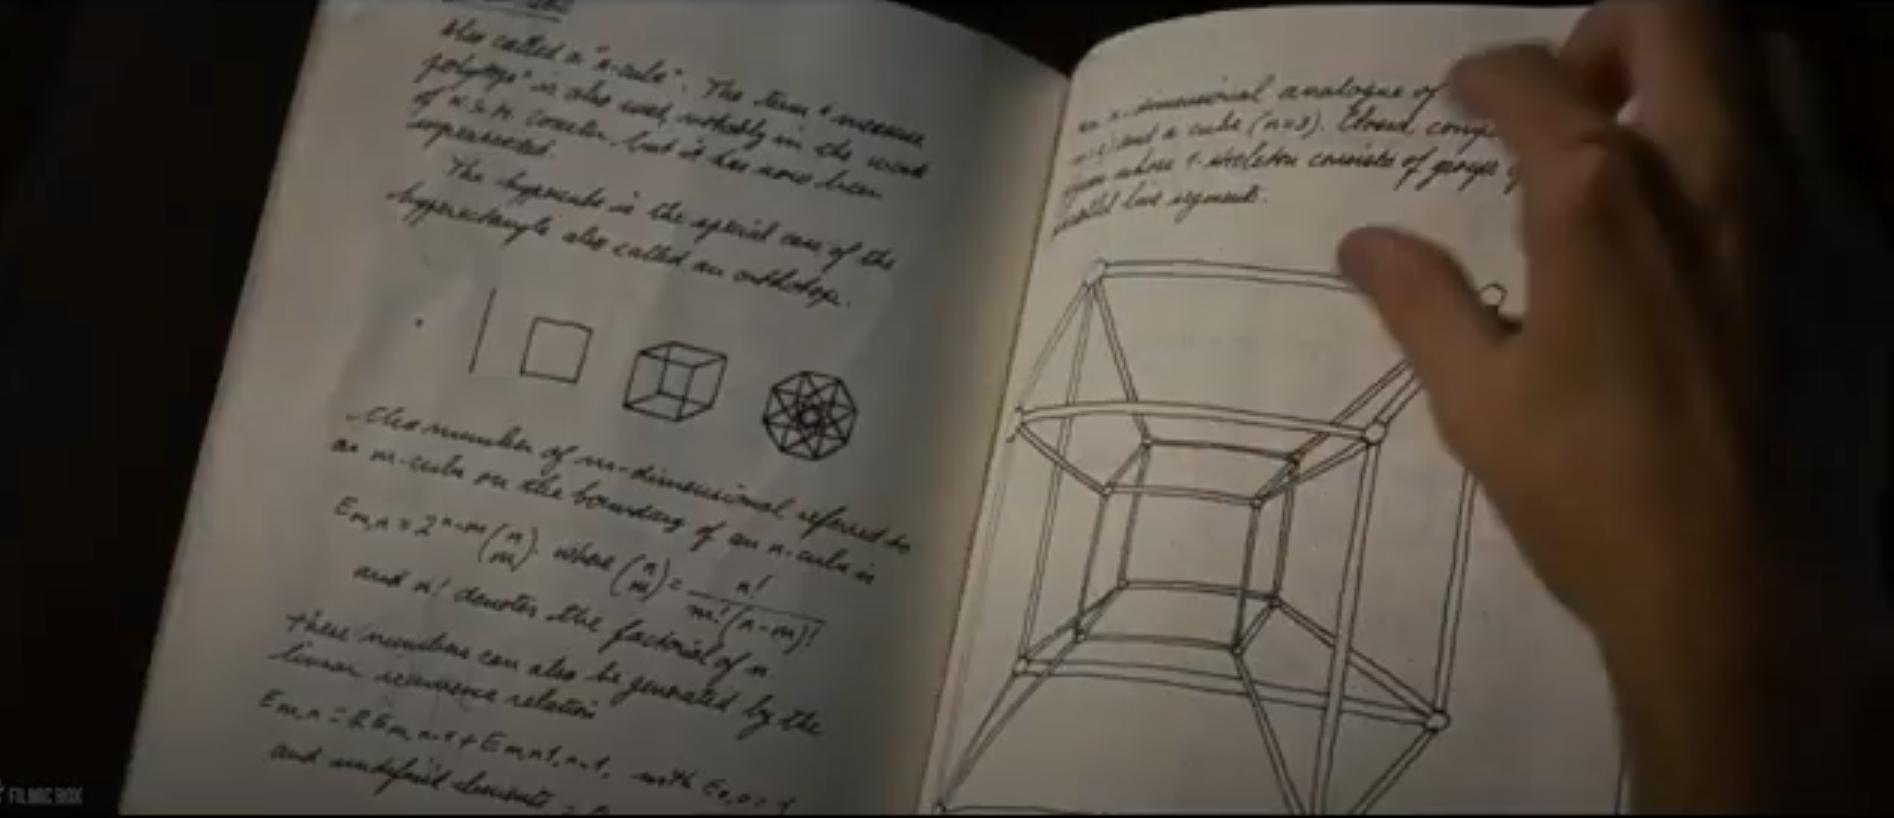 Also called a "n-cube". The term "measure
polytope" is also used, notably in the work
of H.S.M. Coxeter, but it has now been
superseded.
The hypercube is the special case of the
hyperrectangle also called an orthotope.
The number of m-dimensional referred to
as m-cube on the boundary of an n-cube is
E_{m,n} = 2^{n-m} (n m). where (n m) = n! / m!(n-m)!
and n! denotes the factorial of n.
these numbers can also be generated by the
linear recurrence relation
E_{m,n} = 2E_{m,n-1} + E_{m-1,n-1}, with E_{0,0} = 1
and undefined elements =
an n-dimensional analogue of
and a cube (n=3). Closed,
whose 1-skeleton consists of groups
parallel line segments.
FILMIC BOX